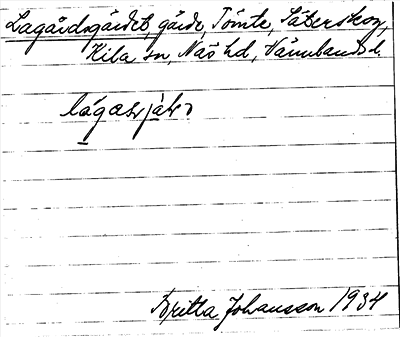 Lagårdsgärdet, gärde, Tömte, Säterskog,
Kila sn, Näs hd, Värmlands l.
Britta Johansson 1934